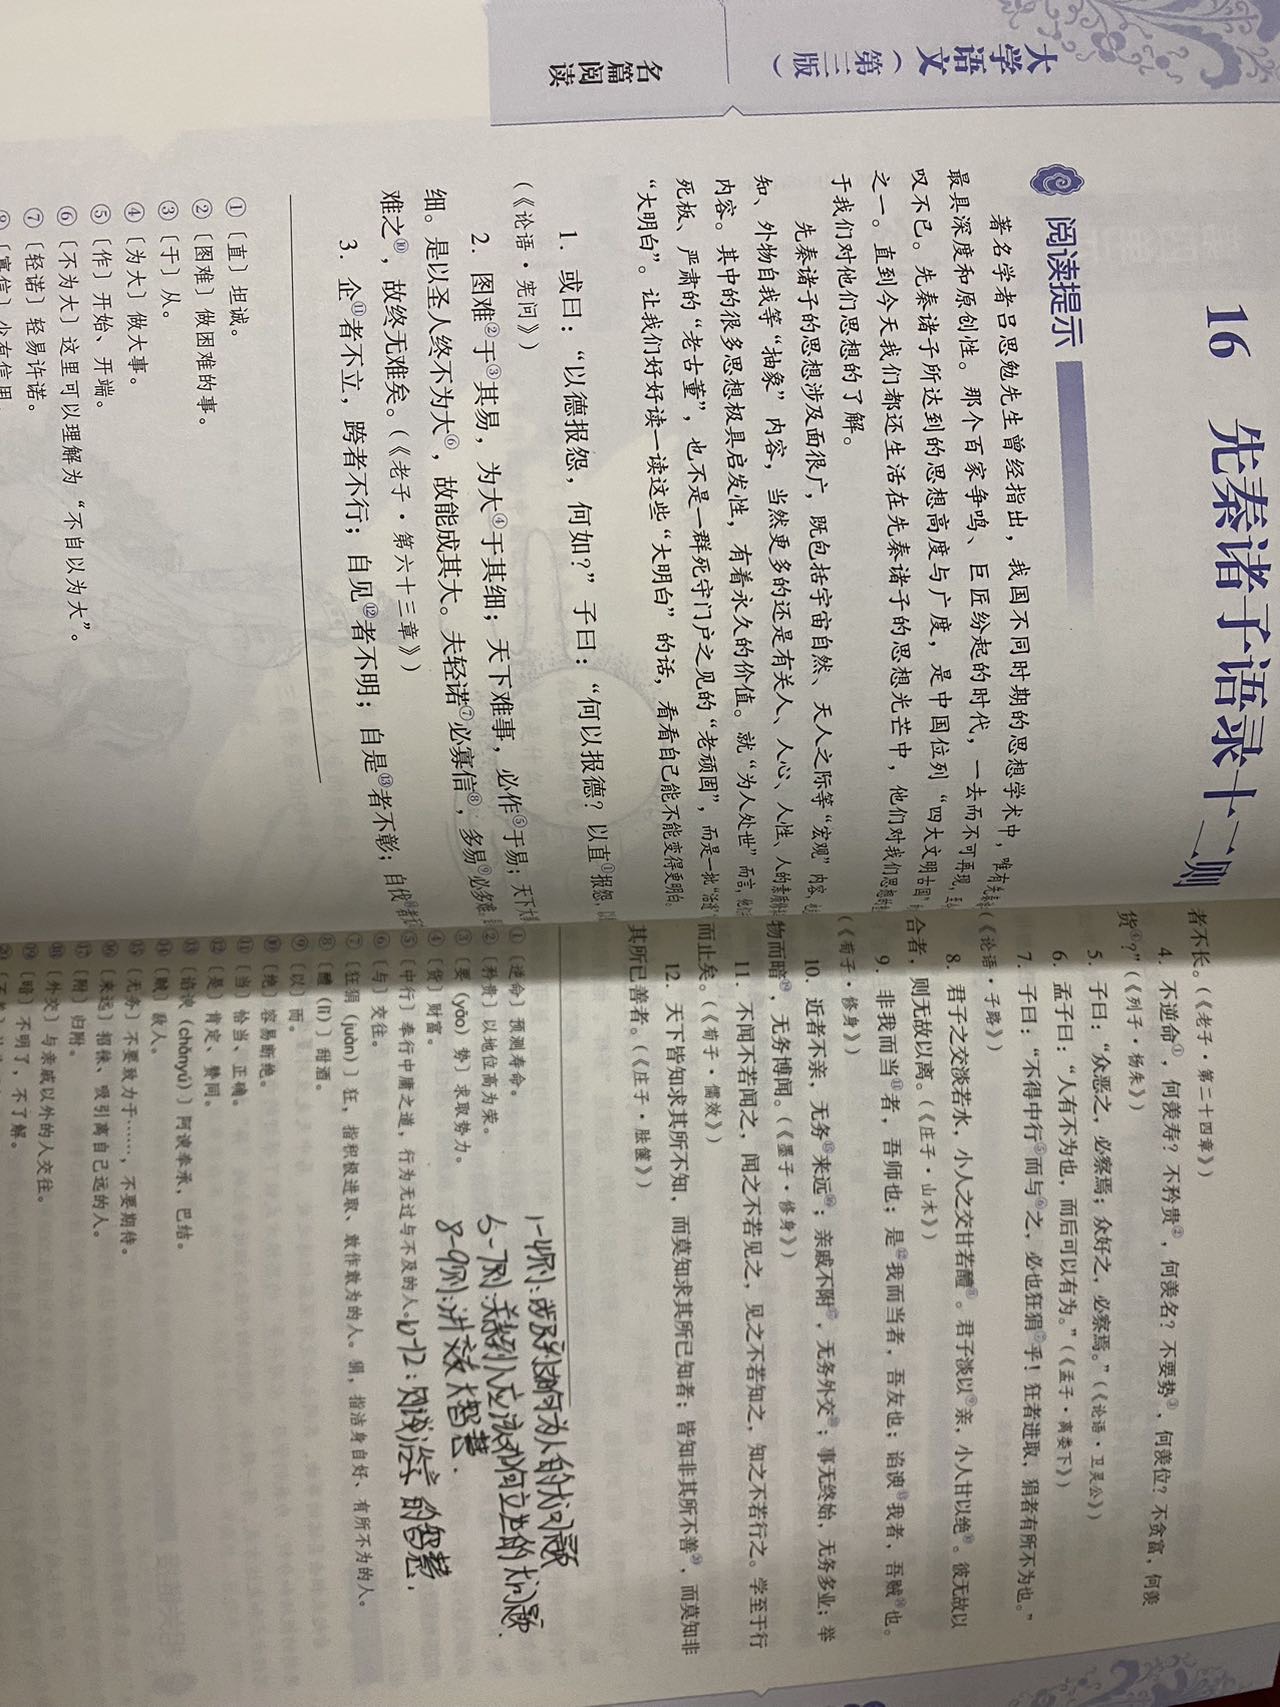 大学语文（第三版）
名篇阅读
16 先秦诸子语录十二则
阅读提示
著名学者吕思勉先生曾经指出，我国不同时期的思想学术中，唯有先秦
最具深度和原创性。那个百家争鸣、巨匠纷起的时代，一去而不可再现，
叹不已。先秦诸子所达到的思想高度与广度，是中国位列“四大文明古国”
之一。直到今天我们都还生活在先秦诸子的思想光芒中，他们对我们思想的
于我们对他们思想的了解。
先秦诸子的思想涉及面很广，既包括宇宙自然、天人之际等“宏观”内容，
知、外物自我等“抽象”内容，当然更多的还是有关人、人心、人性、人的素质
内容。其中的很多思想极具启发性，有着永久的价值。就“为人处世”而言，他们
死板、严肃的“老古董”，也不是一群死守门户之见的“老顽固”，而是一批“活泼”
“大明白”。让我们好好读一读这些“大明白”的话，看看自己能不能变得更明白。
1. 或曰：“以德报怨，何如？”子曰：“何以报德？以直①报怨，
（《论语·宪问》）
2. 图难②于③其易，为大④于其细；天下难事，必作⑤于易；天下大
细。是以圣人终不为大⑥，故能成其大。夫轻诺⑦必寡信⑧，多易⑨必多难。
难之⑩，故终无难矣。（《老子·第六十三章》）
3. 企⑪者不立，跨者不行；自见⑫者不明；自是⑬者不彰；自伐⑭者
①〔直〕坦诚。
②〔图难〕做困难的事。
③〔于〕从。
④〔为大〕做大事。
⑤〔作〕开始、开端。
⑥〔不为大〕这里可以理解为“不自以为大”。
⑦〔轻诺〕轻易许诺。
⑧〔寡信〕少有信用
者不长。（《老子·第二十四章》）
4. 不逆命①，何羡寿？不矜贵②，何羡名？不要势③，何羡位？不贪富，何羡
货④？”（《列子·杨朱》）
5. 子曰：“众恶之，必察焉；众好之，必察焉。”（《论语·卫灵公》）
6. 孟子曰：“人有不为也，而后可以有为。”（《孟子·离娄下》）
7. 子曰：“不得中行⑤而与⑥之，必也狂狷⑦乎！狂者进取，狷者有所不为也。”
（《论语·子路》）
8. 君子之交淡若水，小人之交甘若醴⑧。君子淡以⑨亲，小人甘以绝⑩。彼无故以
合者，则无故以离。（《庄子·山木》）
9. 非我而当⑪者，吾师也；是⑫我而当者，吾友也；谄谀⑬我者，吾贼⑭也。
（《荀子·修身》）
10. 近者不亲，无务⑮来远⑯；亲戚不附⑰，无务外交⑱；事无终始，无务多业；举
物而暗⑲，无务博闻。（《墨子·修身》）
11. 不闻不若闻之，闻之不若见之，见之不若知之，知之不若行之。学至于行
而止矣。（《荀子·儒效》）
12. 天下皆知求其所不知，而莫知求其所已知者；皆知非其所不善⑳，而莫知非
其所已善者。（《庄子·胠箧》）
①〔逆命〕预测寿命。
②〔矜贵〕以地位高为荣。
③〔要（yāo）势〕求取势力。
④〔货〕财富。
⑤〔中行〕奉行中庸之道，行为无过与不及的人。
⑥〔与〕交往。
⑦〔狂狷（juàn）〕狂，指积极进取、敢作敢为的人。狷，指洁身自好、有所不为的人。
⑧〔醴（lǐ）〕甜酒。
⑨〔以〕而。
⑩〔绝〕容易断绝。
⑪〔当〕恰当、正确。
⑫〔是〕肯定、赞同。
⑬〔谄谀（chǎnyú）〕阿谀奉承，巴结。
⑭〔贼〕敌人。
⑮〔无务〕不要致力于……，不要期待。
⑯〔来远〕招徕、吸引离自己远的人。
⑰〔附〕归附。
⑱〔外交〕与亲戚以外的人交往。
⑲〔暗〕不明了，不了解。
1-4则：涉及到如何为人的大问题
5-7则：关系到人应该如何立世的大问题.
8-9则：讲交友大智慧.
10-12：则谈治学的智慧.